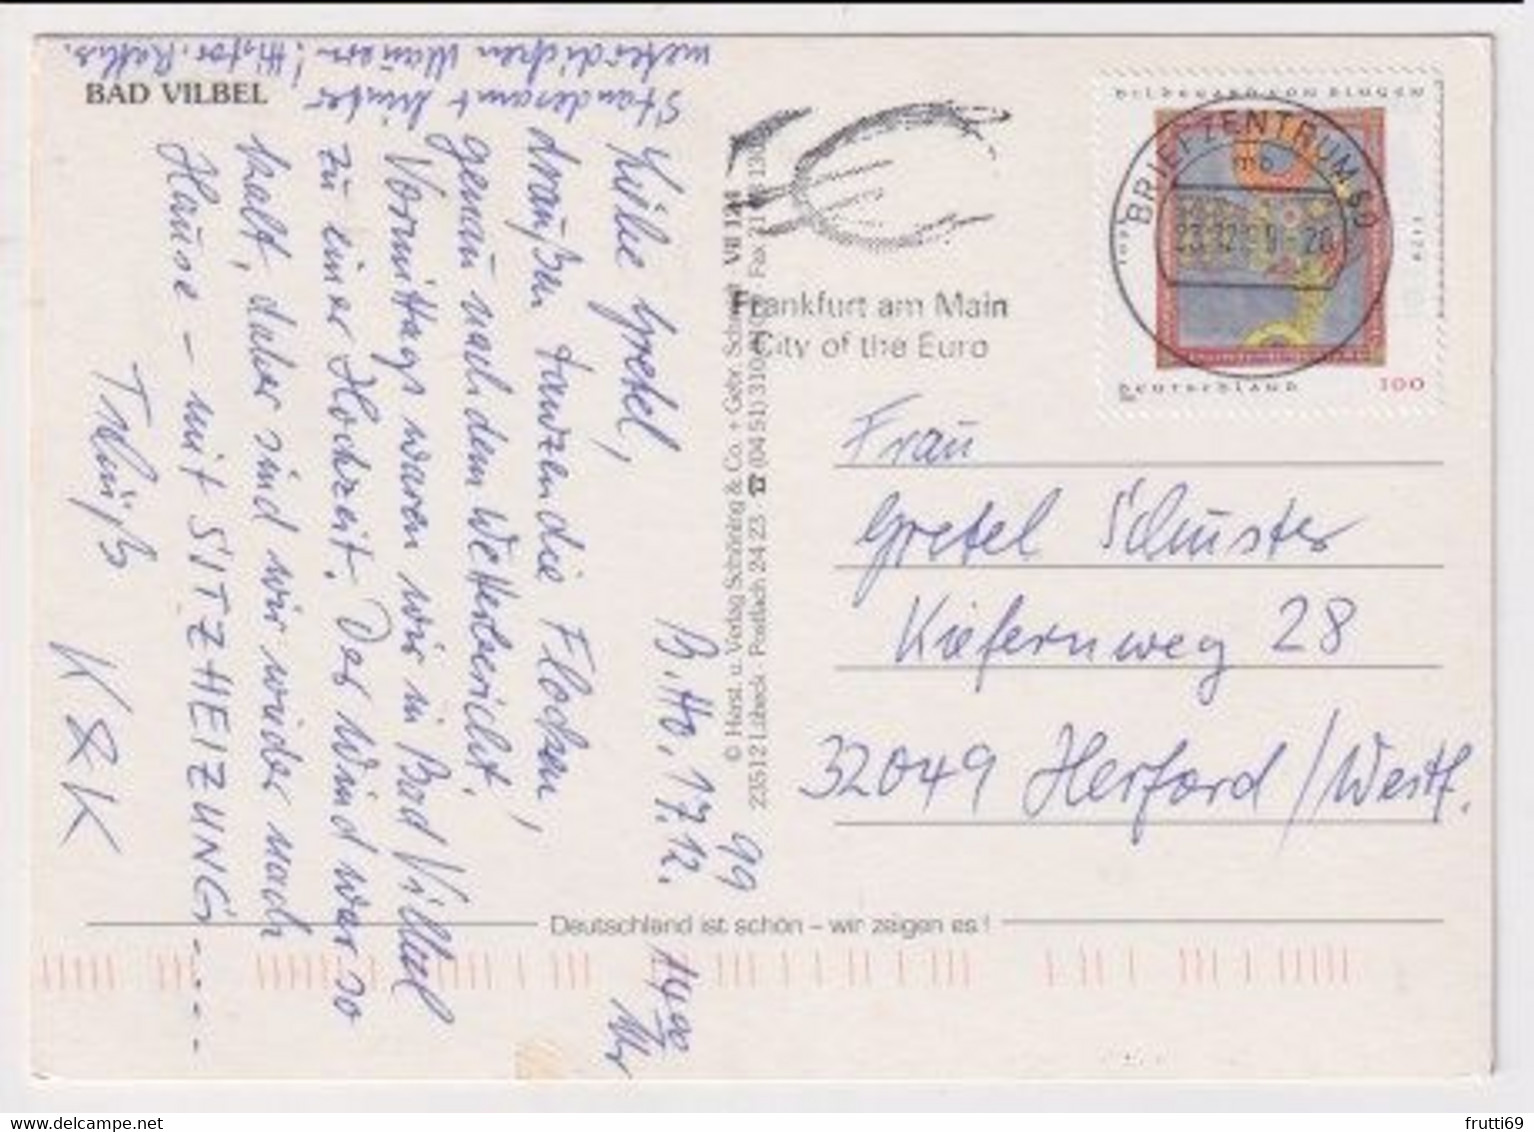 BAD VILBEL
B. Ho, 17.12.99
14.00 Uhr
Liebe Gretel,
draußen tanzen die Flocken,
genau nach dem Wetterbericht.
Vormittags waren wir in Bad Vilbel
zu einer Hochzeit. Der Wind war so
kalt, daher sind wir wieder nach
Hause – mit SITZHEIZUNG - - - -
Tschüß
K & K
Standesamt hinter
meterdicken Mauern! Histor. Raths.
© Herst. u. Verlag Schöning & Co. + Gebr. Schmidt · Vil
23512 Lübeck · Postfach 24 23 · ☎ (04 51) 310 Fax
Frankfurt am Main
City of the Euro
HILDEGARD VON BINGEN
1098
1179
DEUTSCHLAND 100
BRIEFZENTRUM 60
mb
23.12.99-20
Frau
Gretel Schuster
Kiefernweg 28
32049 Herford/Westf.
Deutschland ist schön – wir zeigen es!
frutti69